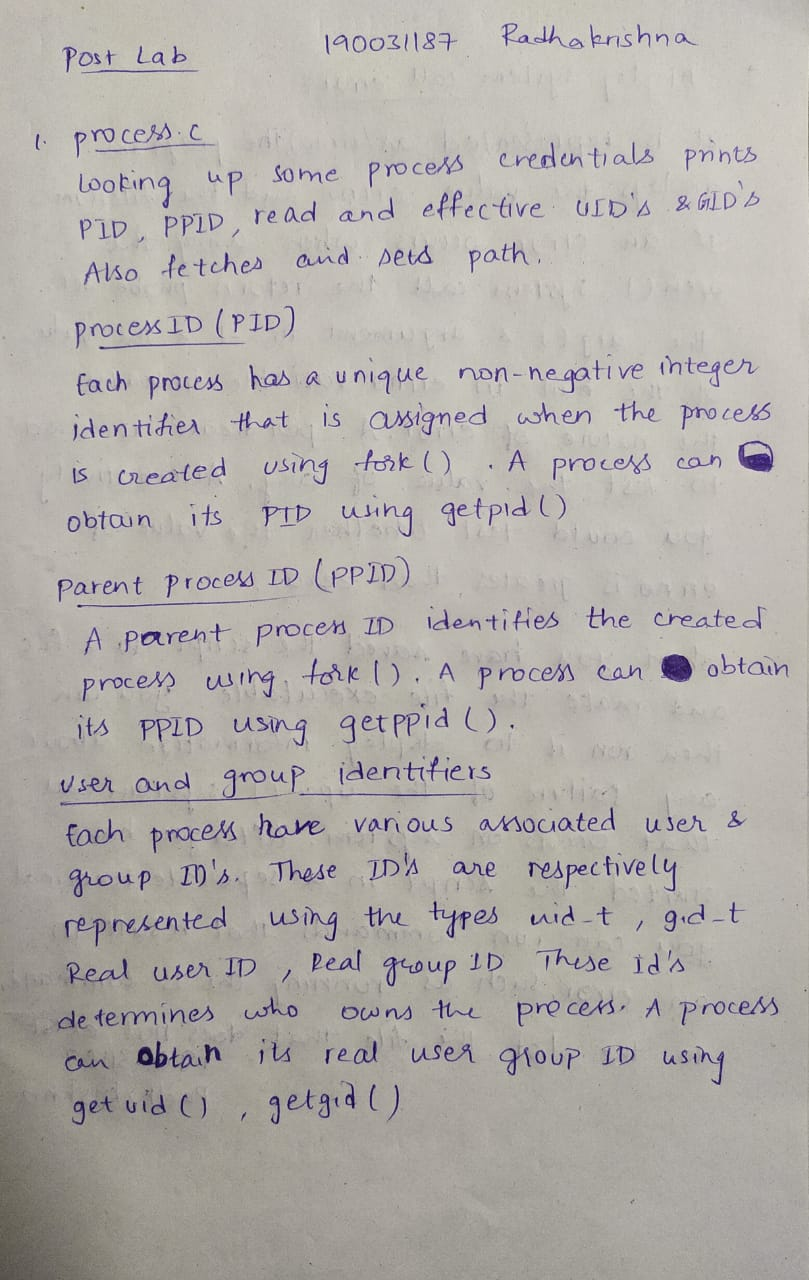 Post Lab
190031187 Radhakrishna
1. process.c
Looking up some process credentials prints
PID, PPID, read and effective UID's & GID's
Also fetches and sets path.
process ID (PID)
Each process has a unique non-negative integer
identifier that is assigned when the process
is created using fork() . A process can
obtain its PID using getpid()
Parent process ID (PPID)
A parent process ID identifies the created
process using fork(). A process can obtain
its PPID using getppid().
User and group identifiers
Each process have various associated user &
group ID's. These ID's are respectively
represented using the types uid-t, gid-t
Real user ID, Real group ID These id's
determines who owns the process. A process
can obtain its real user group ID using
getuid(), getgid()